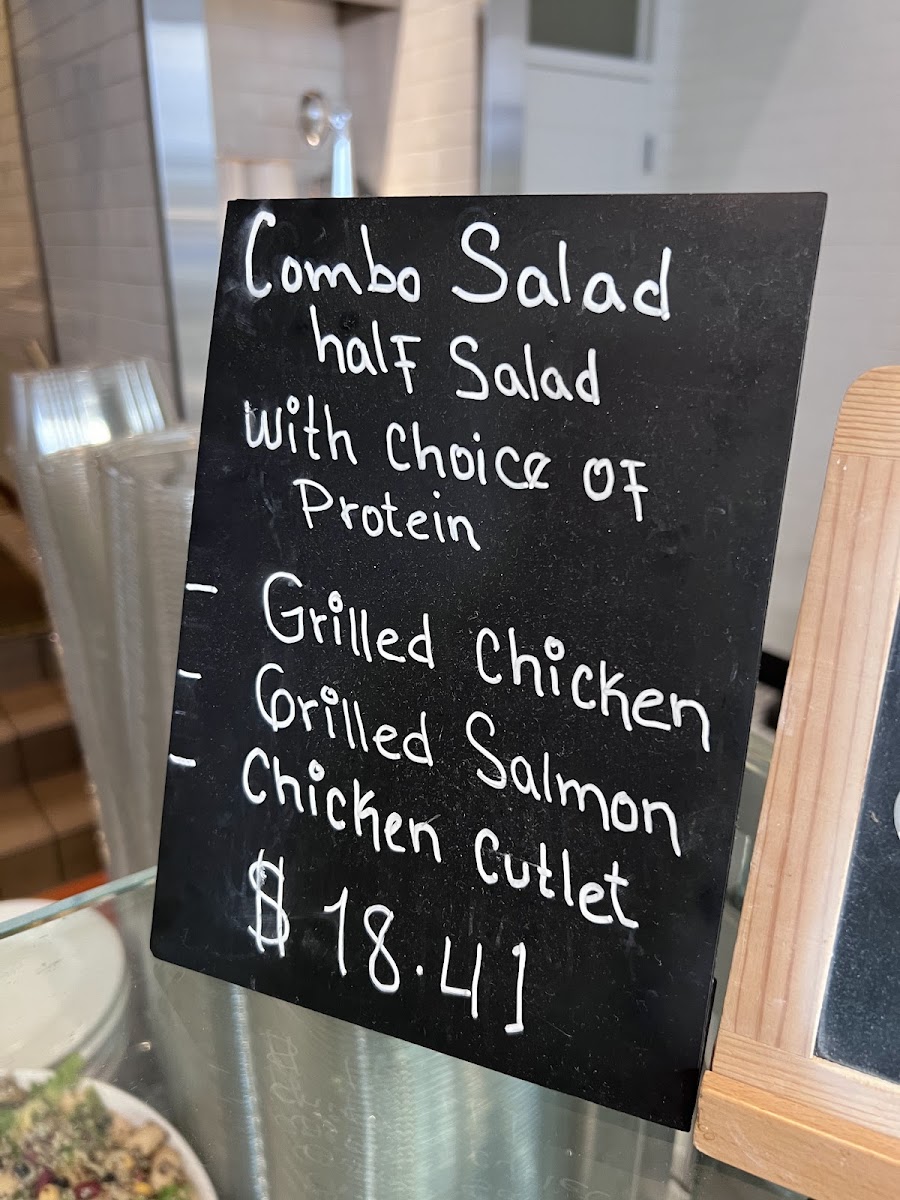 Combo Salad
half Salad
with choice of
Protein
- Grilled Chicken
- Grilled Salmon
- Chicken Cutlet
$ 18.41